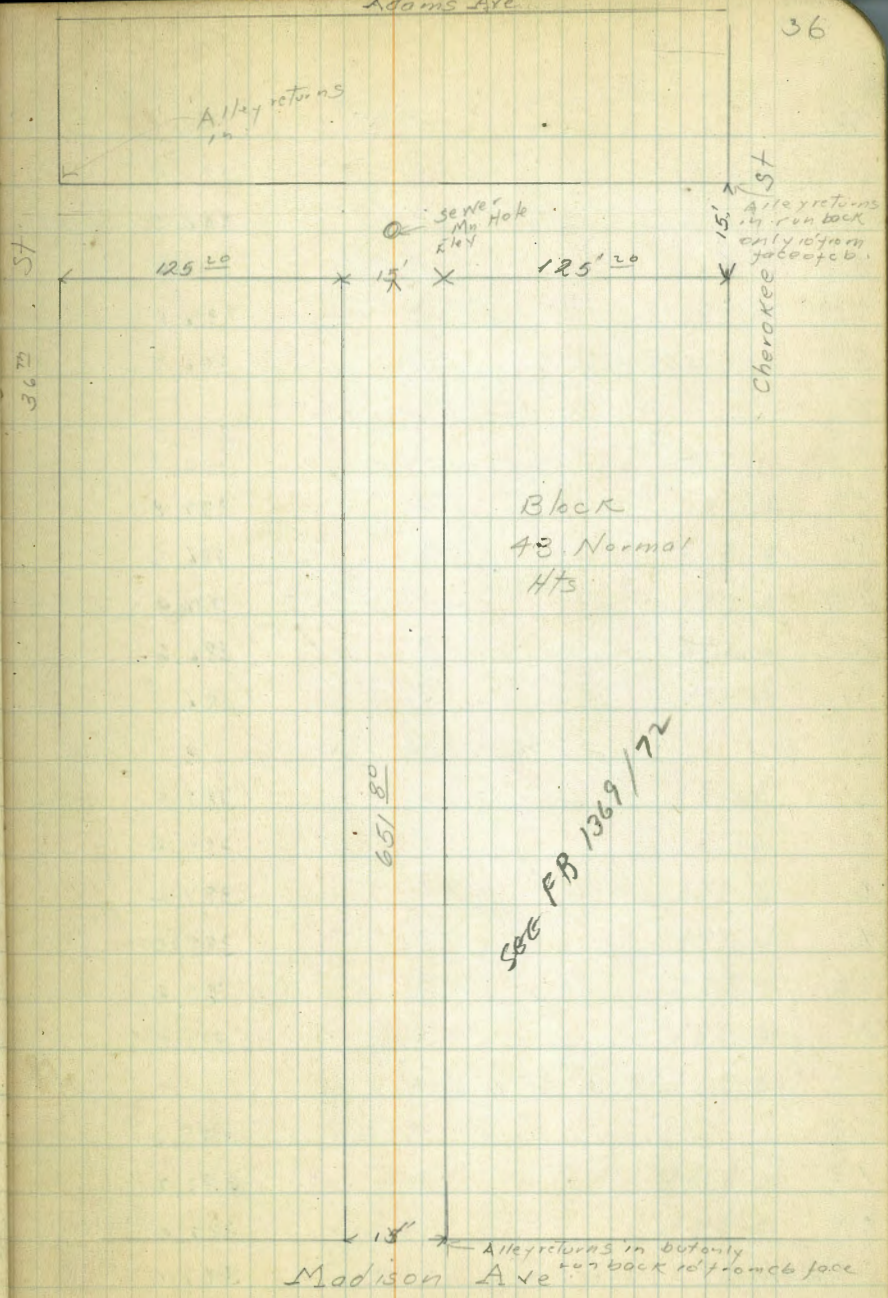 Adams Ave
36
Alley returns
in
St
Alley returns
in run back
only 10' from
face of cb.
Sewer
Mn Hole
Elev
15'
125 20
15'
125' 20
36 TH St
Cherokee
Block
43 Normal
Hts
651 80
SEE FB 1369/72
15'
Alley returns in but only
run back 10' from cb face
Madison Ave